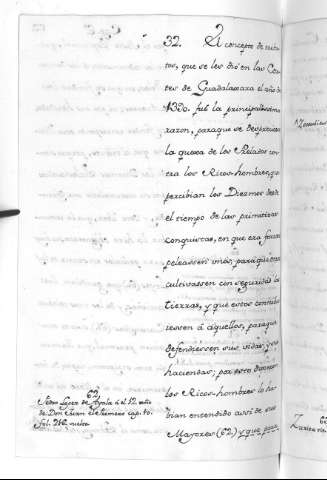 32. El concepto de tribu-
tos, que se les dió en las Cor-
tes de Guadalaxara el año de
1390. fué la principalissima
razon, paraque se despreciase
la quexa de los Prelados con-
tra los Ricos-hombres, que
percibian los Diezmos desde
el tiempo de las primitivas
conquistas, en que era forzoso
peleassen unos, para que otros
cultivassen con seguridad las
tierras, y que estos contribu-
iessen á aquellos, paraque
defendiessen sus vidas, y sus
haciendas; por esto dixeron
los Ricos-hombres lo ha-
bian entendido assi de sus
Mayores (62) y que para
62
Pedro Lopez de Ayala á el 12. año
de Don Juan el primero cap. 10.
fol. 212. vuelta
62